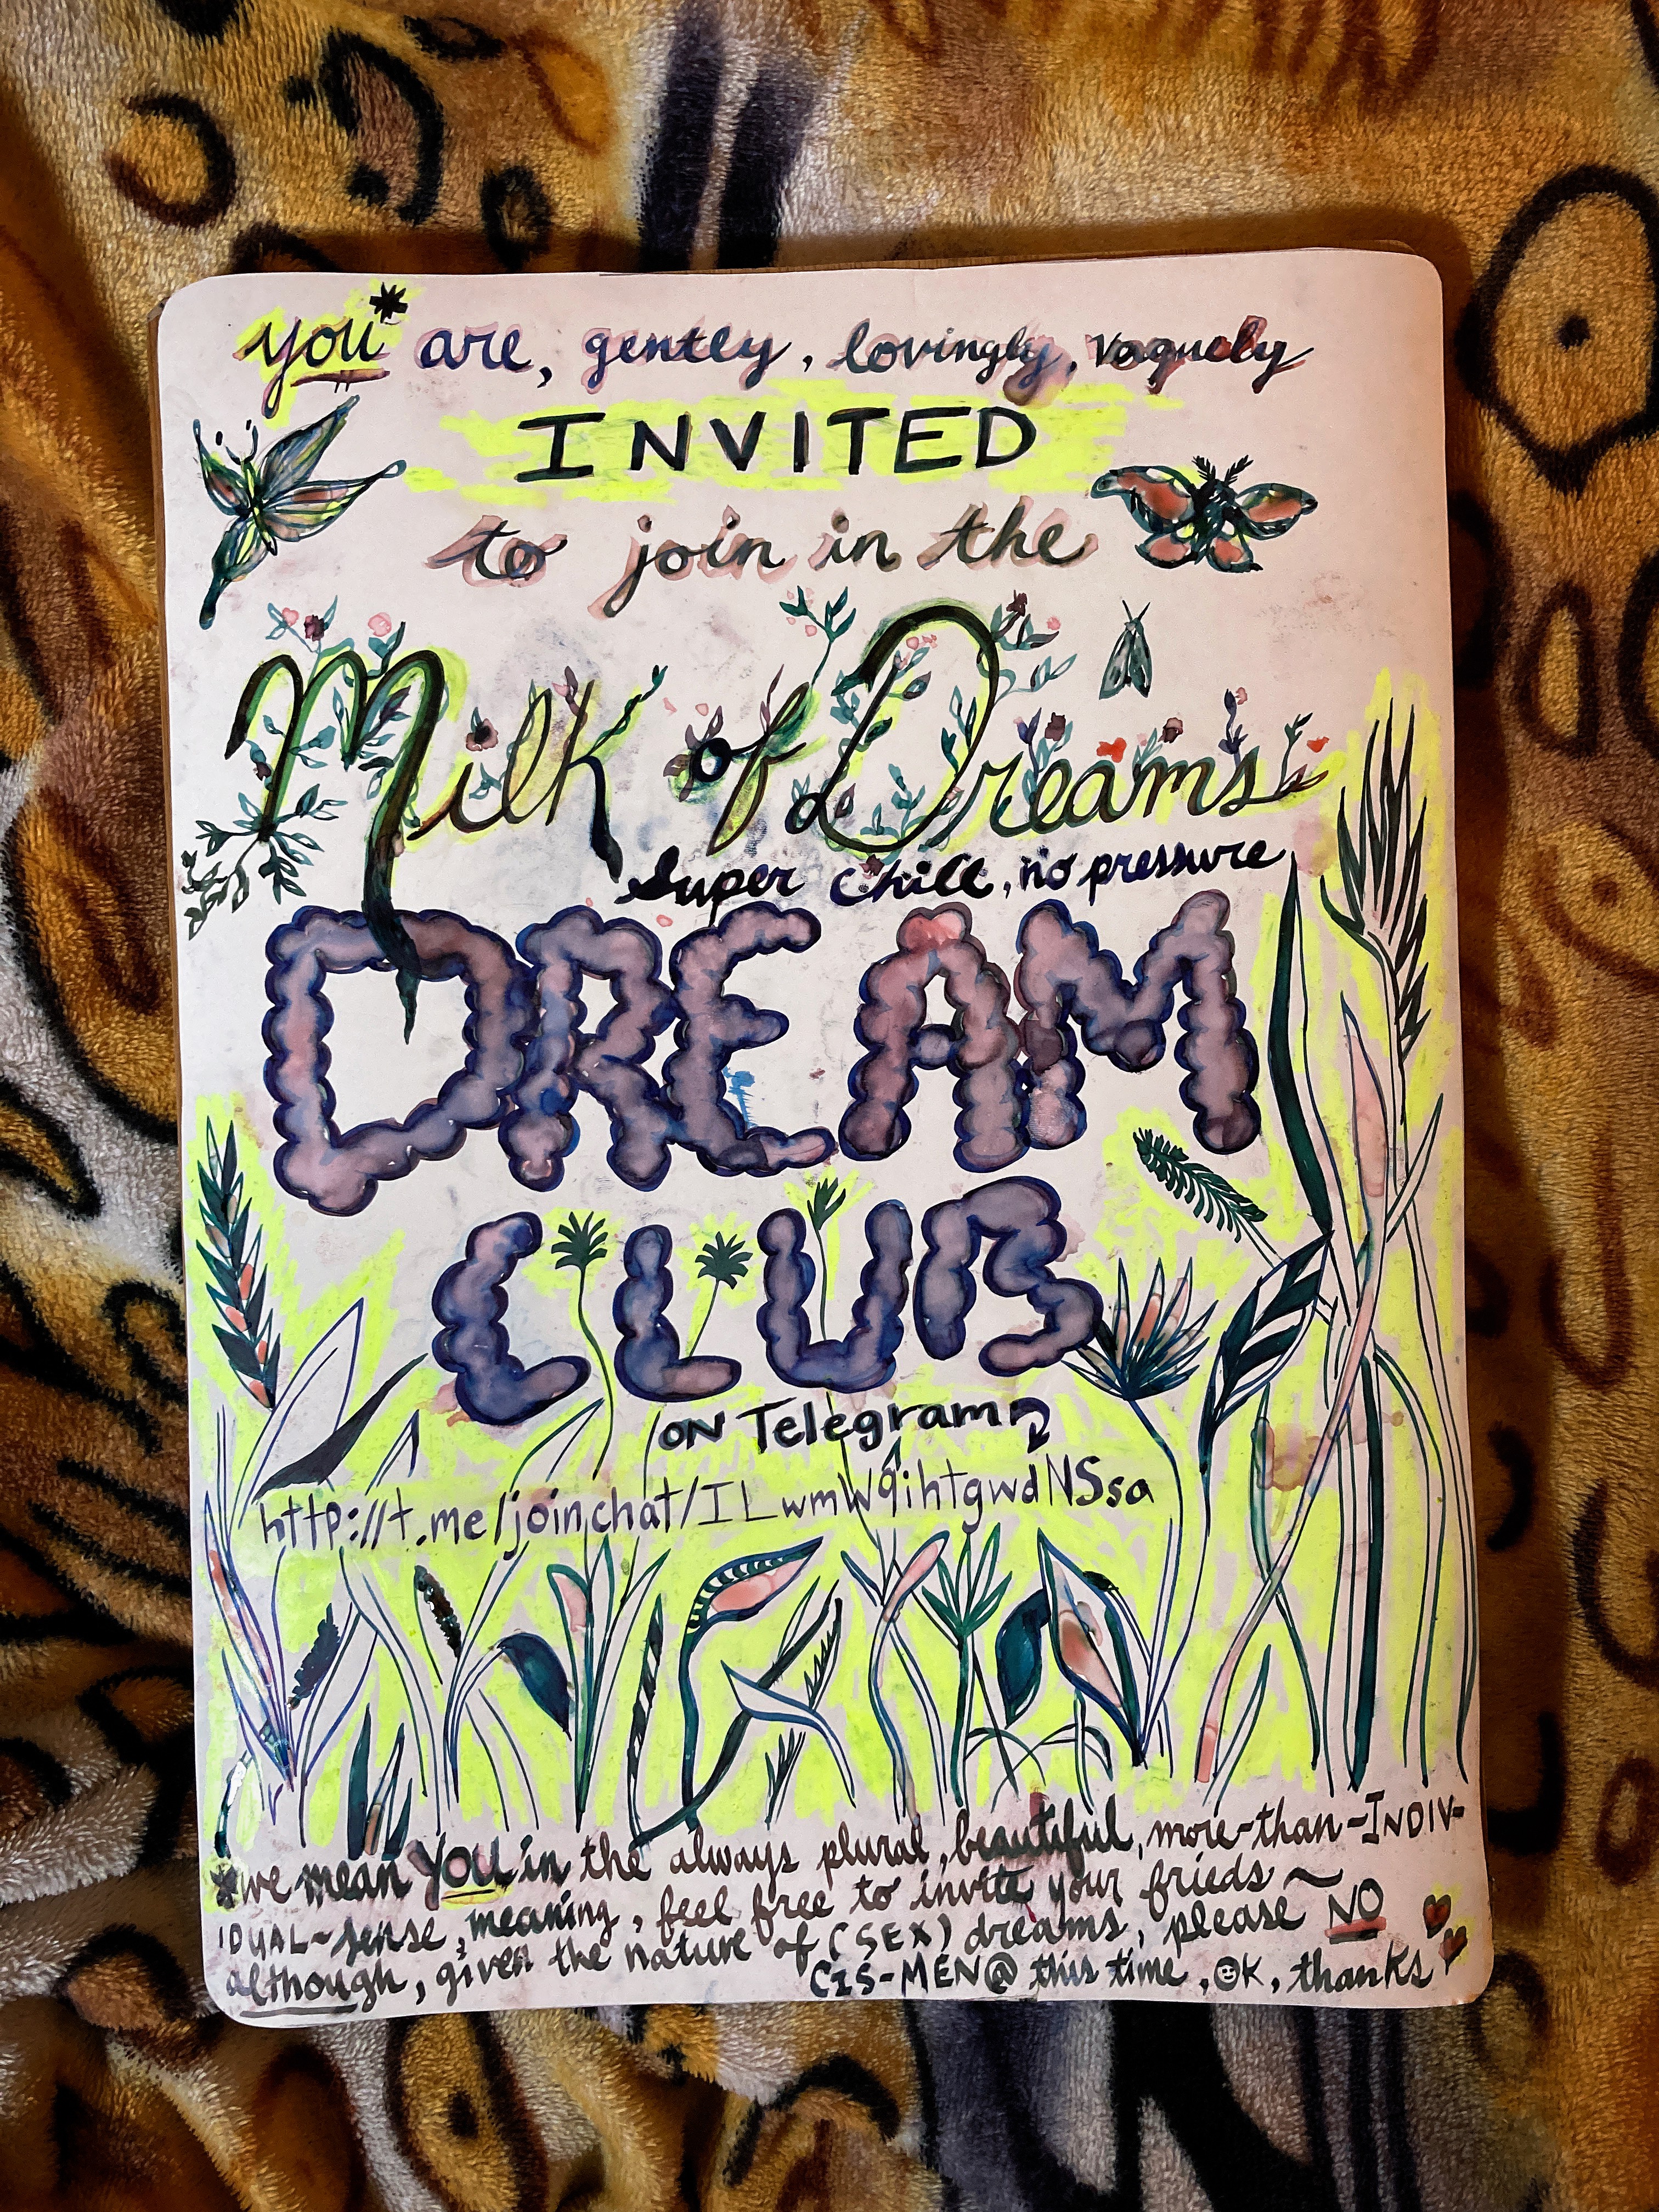 you* are, gently, lovingly, vaguely
INVITED
to join in the
Milk of Dreams
super chill, no pressure
DREAM
CLUB
ON Telegram
http://t.me/joinchat/ILwmW9ihtgwdNSsa
*we mean YOU in the always plural, beautiful, more-than-INDIV-
IDUAL-sense, meaning, feel free to invite your frieds ~
although, given the nature of (SEX) dreams, please NO
CIS-MEN @ this time, OK, thanks